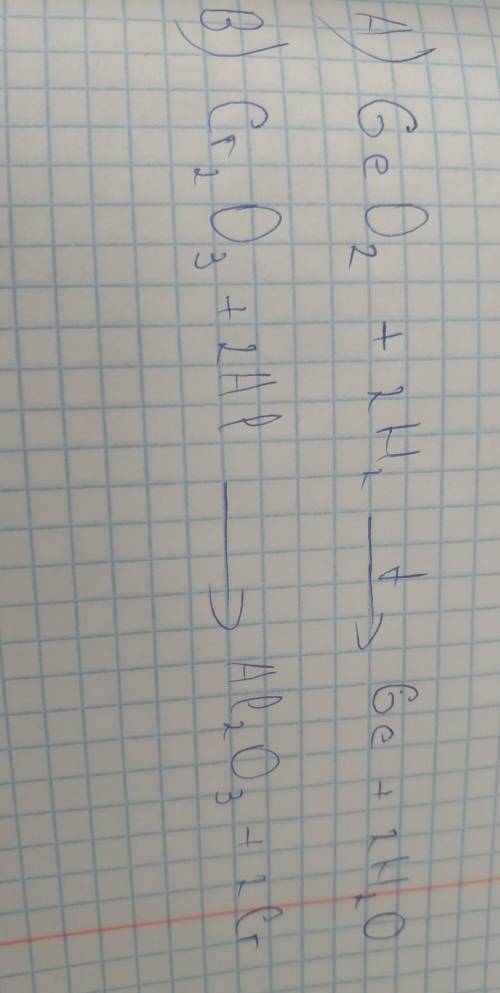 A) GeO₂ + 2H₂ →ᵗ Ge + 2H₂O
B) Cr₂O₃ + 2Al → Al₂O₃ + 2Cr